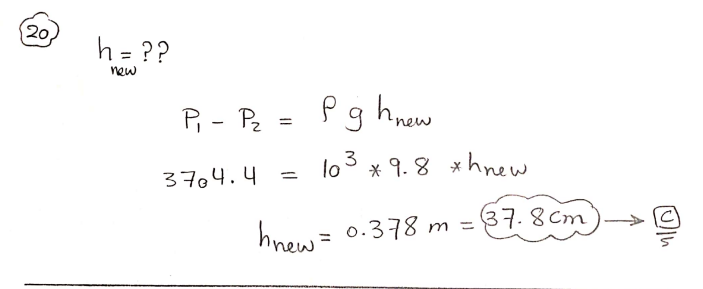 20
h new = ??
P₁ - P₂ = ρ g h new
3704.4 = 10³ * 9.8 * h new
h new = 0.378 m = 37.8 cm → C